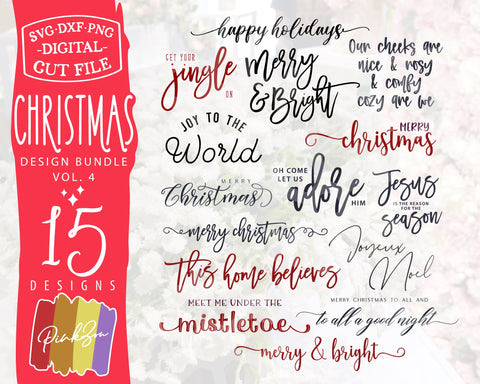 SVG·DXF·PNG
-DIGITAL-
CUT FILE
CHRISTMAS
DESIGN BUNDLE
VOL. 4
15
DESIGNS
PinkZou
happy holidays
GET YOUR
jingle
ON
Merry
& Bright
Our cheeks are
nice & rosy
& comfy
cozy are we
JOY TO THE
World
MERRY
christmas
MERRY
Christmas
OH COME
LET US
adore
HIM
Jesus
IS THE REASON
FOR THE
season
merry christmas
Joyeux
Noel
This home believes
MEET ME UNDER THE
mistletoe
MERRY CHRISTMAS TO ALL AND
to all a good night
merry & bright